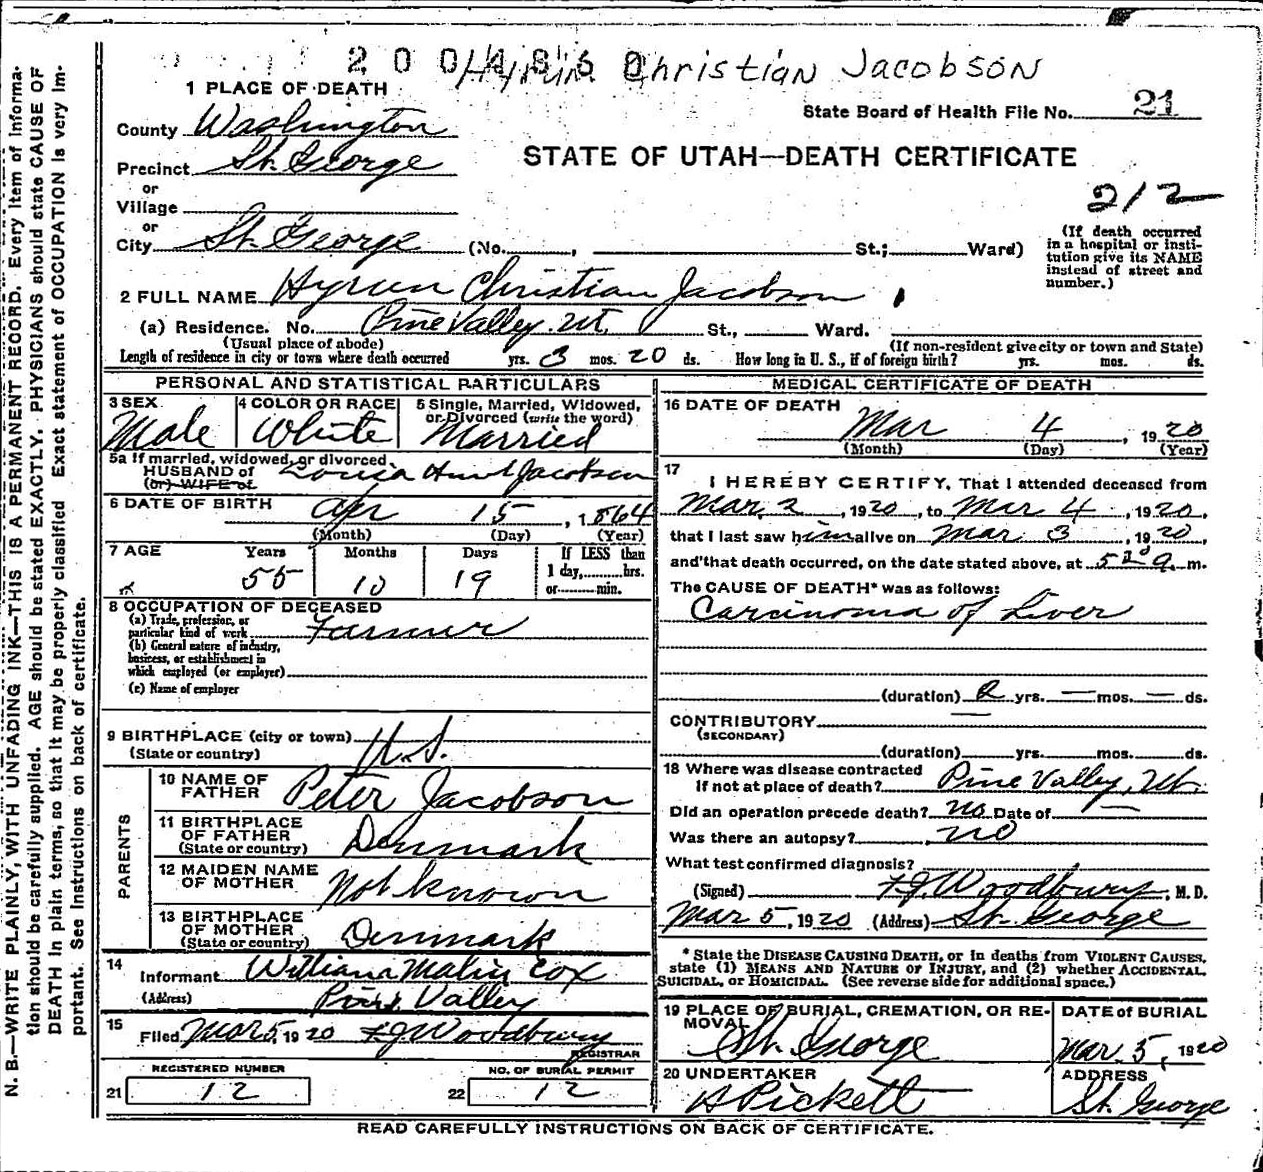 2004860 Hyrum Christian Jacobson
1 PLACE OF DEATH
State Board of Health File No. 21
County Washington
STATE OF UTAH—DEATH CERTIFICATE
Precinct St. George
or
Village
212
or
City St. George (No. , St.; Ward)
(If death occurred in a hospital or insti-
tution give its NAME instead of street and number.)
2 FULL NAME Hyrum Christian Jacobson
(a) Residence. No. Pine Valley. Ut. St., Ward.
(Usual place of abode) (If non-resident give city or town and State)
Length of residence in city or town where death occurred yrs. 3 mos. 20 ds. How long in U. S., if of foreign birth? yrs. mos. ds.
PERSONAL AND STATISTICAL PARTICULARS
3 SEX 4 COLOR OR RACE 5 Single, Married, Widowed, or Divorced (write the word)
Male White Married
5a If married, widowed, or divorced
HUSBAND of Jacobson
(or) WIFE of
6 DATE OF BIRTH Apr 15, 1864
(Month) (Day) (Year)
7 AGE Years Months Days If LESS than
55 10 19 1 day, hrs.
or min.
8 OCCUPATION OF DECEASED
(a) Trade, profession, or
particular kind of work Farmer
(b) General nature of industry,
business, or establishment in
which employed (or employer)
(c) Name of employer
9 BIRTHPLACE (city or town) U.S.
(State or country)
PARENTS
10 NAME OF FATHER Peter Jacobson
11 BIRTHPLACE OF FATHER Denmark
(State or country)
12 MAIDEN NAME OF MOTHER Not known
13 BIRTHPLACE OF MOTHER Denmark
(State or country)
14 Informant William Malin Cox
(Address) Pine Valley
15 Filed Mar 5, 1920 F.J. Woodbury
REGISTRAR
REGISTERED NUMBER NO. OF BURIAL PERMIT
21 12 22 12
MEDICAL CERTIFICATE OF DEATH
16 DATE OF DEATH
Mar 4, 1920
(Month) (Day) (Year)
17
I HEREBY CERTIFY, That I attended deceased from
Mar. 2, 1920, to Mar 4, 1920,
that I last saw him alive on Mar 3, 1920,
and that death occurred, on the date stated above, at 5 20 a. m.
The CAUSE OF DEATH* was as follows:
Carcinoma of Liver
(duration) 2 yrs. — mos. — ds.
CONTRIBUTORY
(SECONDARY)
(duration) yrs. mos. ds.
18 Where was disease contracted
If not at place of death? Pine Valley, Ut.
Did an operation precede death? No Date of —
Was there an autopsy? no
What test confirmed diagnosis?
(Signed) F.J. Woodbury, M. D.
Mar 5, 1920 (Address) St. George
* State the DISEASE CAUSING DEATH, or in deaths from VIOLENT CAUSES,
state (1) MEANS AND NATURE OF INJURY, and (2) whether ACCIDENTAL,
SUICIDAL, or HOMICIDAL. (See reverse side for additional space.)
19 PLACE OF BURIAL, CREMATION, OR RE- DATE of BURIAL
MOVAL St. George Mar. 5, 1920
20 UNDERTAKER ADDRESS
Pickett St. George
READ CAREFULLY INSTRUCTIONS ON BACK OF CERTIFICATE.
N. B.—WRITE PLAINLY, WITH UNFADING INK—THIS IS A PERMANENT RECORD. Every item of informa-
tion should be carefully supplied. AGE should be stated EXACTLY. PHYSICIANS should state CAUSE OF
DEATH in plain terms, so that it may be properly classified. Exact statement of OCCUPATION is very im-
portant. See instructions on back of certificate.